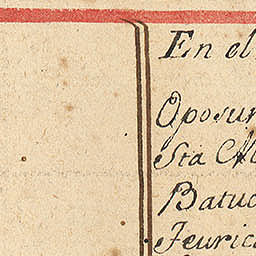 En el
Oposur
Sta M
Batuc
Teuric